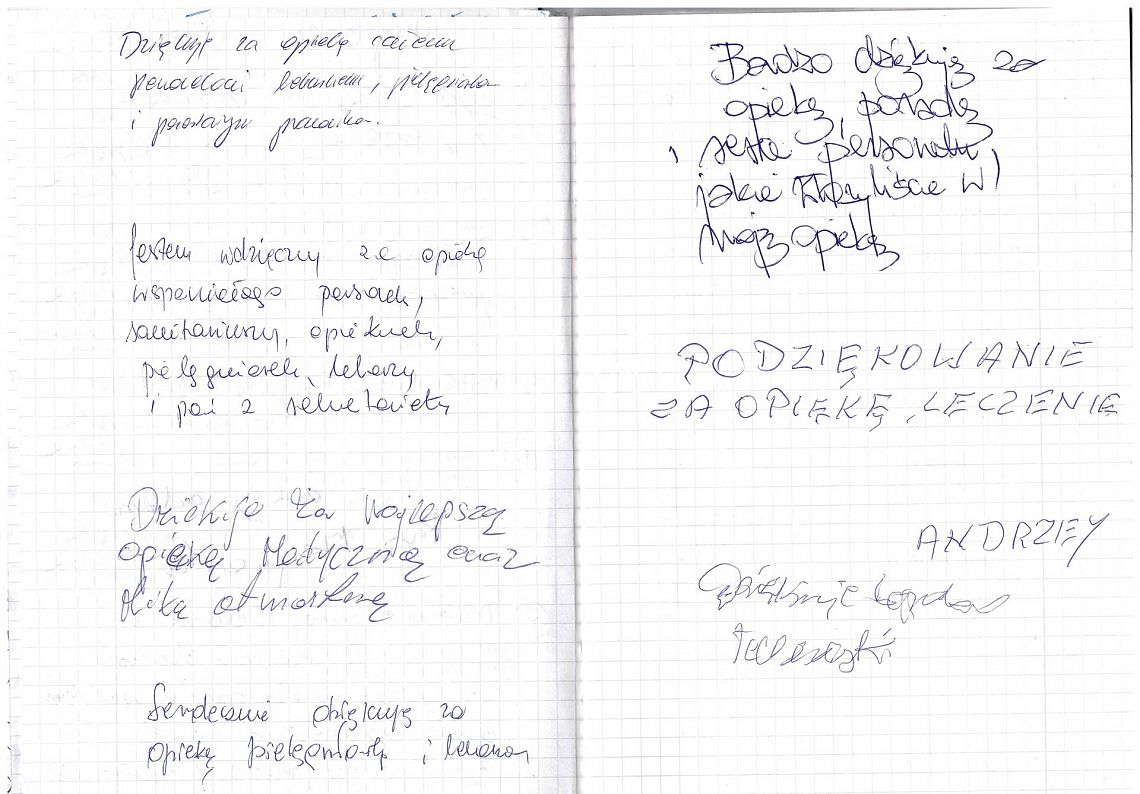 Dziękuję za opiekę całemu
personelowi lekarskiemu, pielęgniarkom
i pozostałym pracownikom.
Jestem wdzięczny za opiekę
wspaniałego personelu,
sanitariuszy, opiekunek,
pielęgniarek, lekarzy
i pań z sekretariatu
Dziękuję za najlepszą
opiekę Medyczną oraz
miłą atmosferę
Serdecznie dziękuję za
opiekę pielęgniarską i lekarską
Bardzo dziękuję za
opiekę, poradę
i serce personelu,
jakie włożyliście w
moją opiekę
PODZIĘKOWANIE
ZA OPIĘKĘ, LECZENIE
ANDRZEY
Dziękuje bardzo